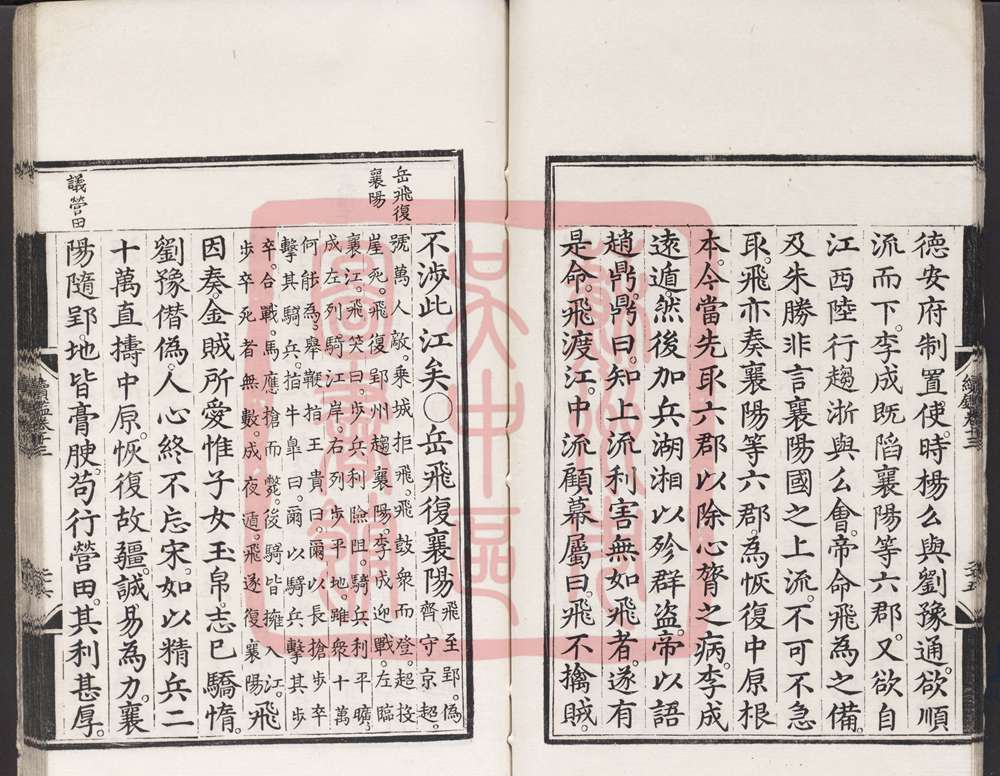 德安府制置使。時楊么與劉豫通。欲順
流而下。李成既陷襄陽等六郡。又欲自
江西陸行趨浙與么會。帝命飛為之備。
及朱勝非言襄陽國之上流。不可不急
取。飛亦奏襄陽等六郡為恢復中原根
本。今當先取六郡以除心膂之病。李成
遠遁然後加兵湖湘以殄群盜。帝以語
趙鼎。鼎曰。知上流利害無如飛者。遂有
是命。飛渡江。中流顧幕屬曰。飛不擒賊。
續鑑卷十三
岳飛復
襄陽
不涉此江矣〇岳飛復襄陽
飛至郢。偽
齊守京超。
號萬人敵。乘城拒飛。飛鼓衆而登。超投
崖死。飛復郢州趨襄陽。李成迎戰。左臨
襄江。飛笑曰。步兵利險阻。騎兵利平曠。
成左列騎江岸。右列步平地。雖衆十萬
何能為。舉鞭指王貴曰。爾以長搶步卒
擊其騎兵。指牛皐曰。爾以騎兵擊其步
卒。合戰。馬應搶而斃。後騎皆擁入江。
步卒死者無數。成夜遁。飛遂復襄陽。
飛
因奏。金賊所愛惟子女玉帛。志已驕惰。
劉豫僭偽。人心終不忘宋。如以精兵二
十萬直擣中原。恢復故疆。誠易為力。襄
陽隨郢。地皆膏腴。苟行營田。其利甚厚。
議營田